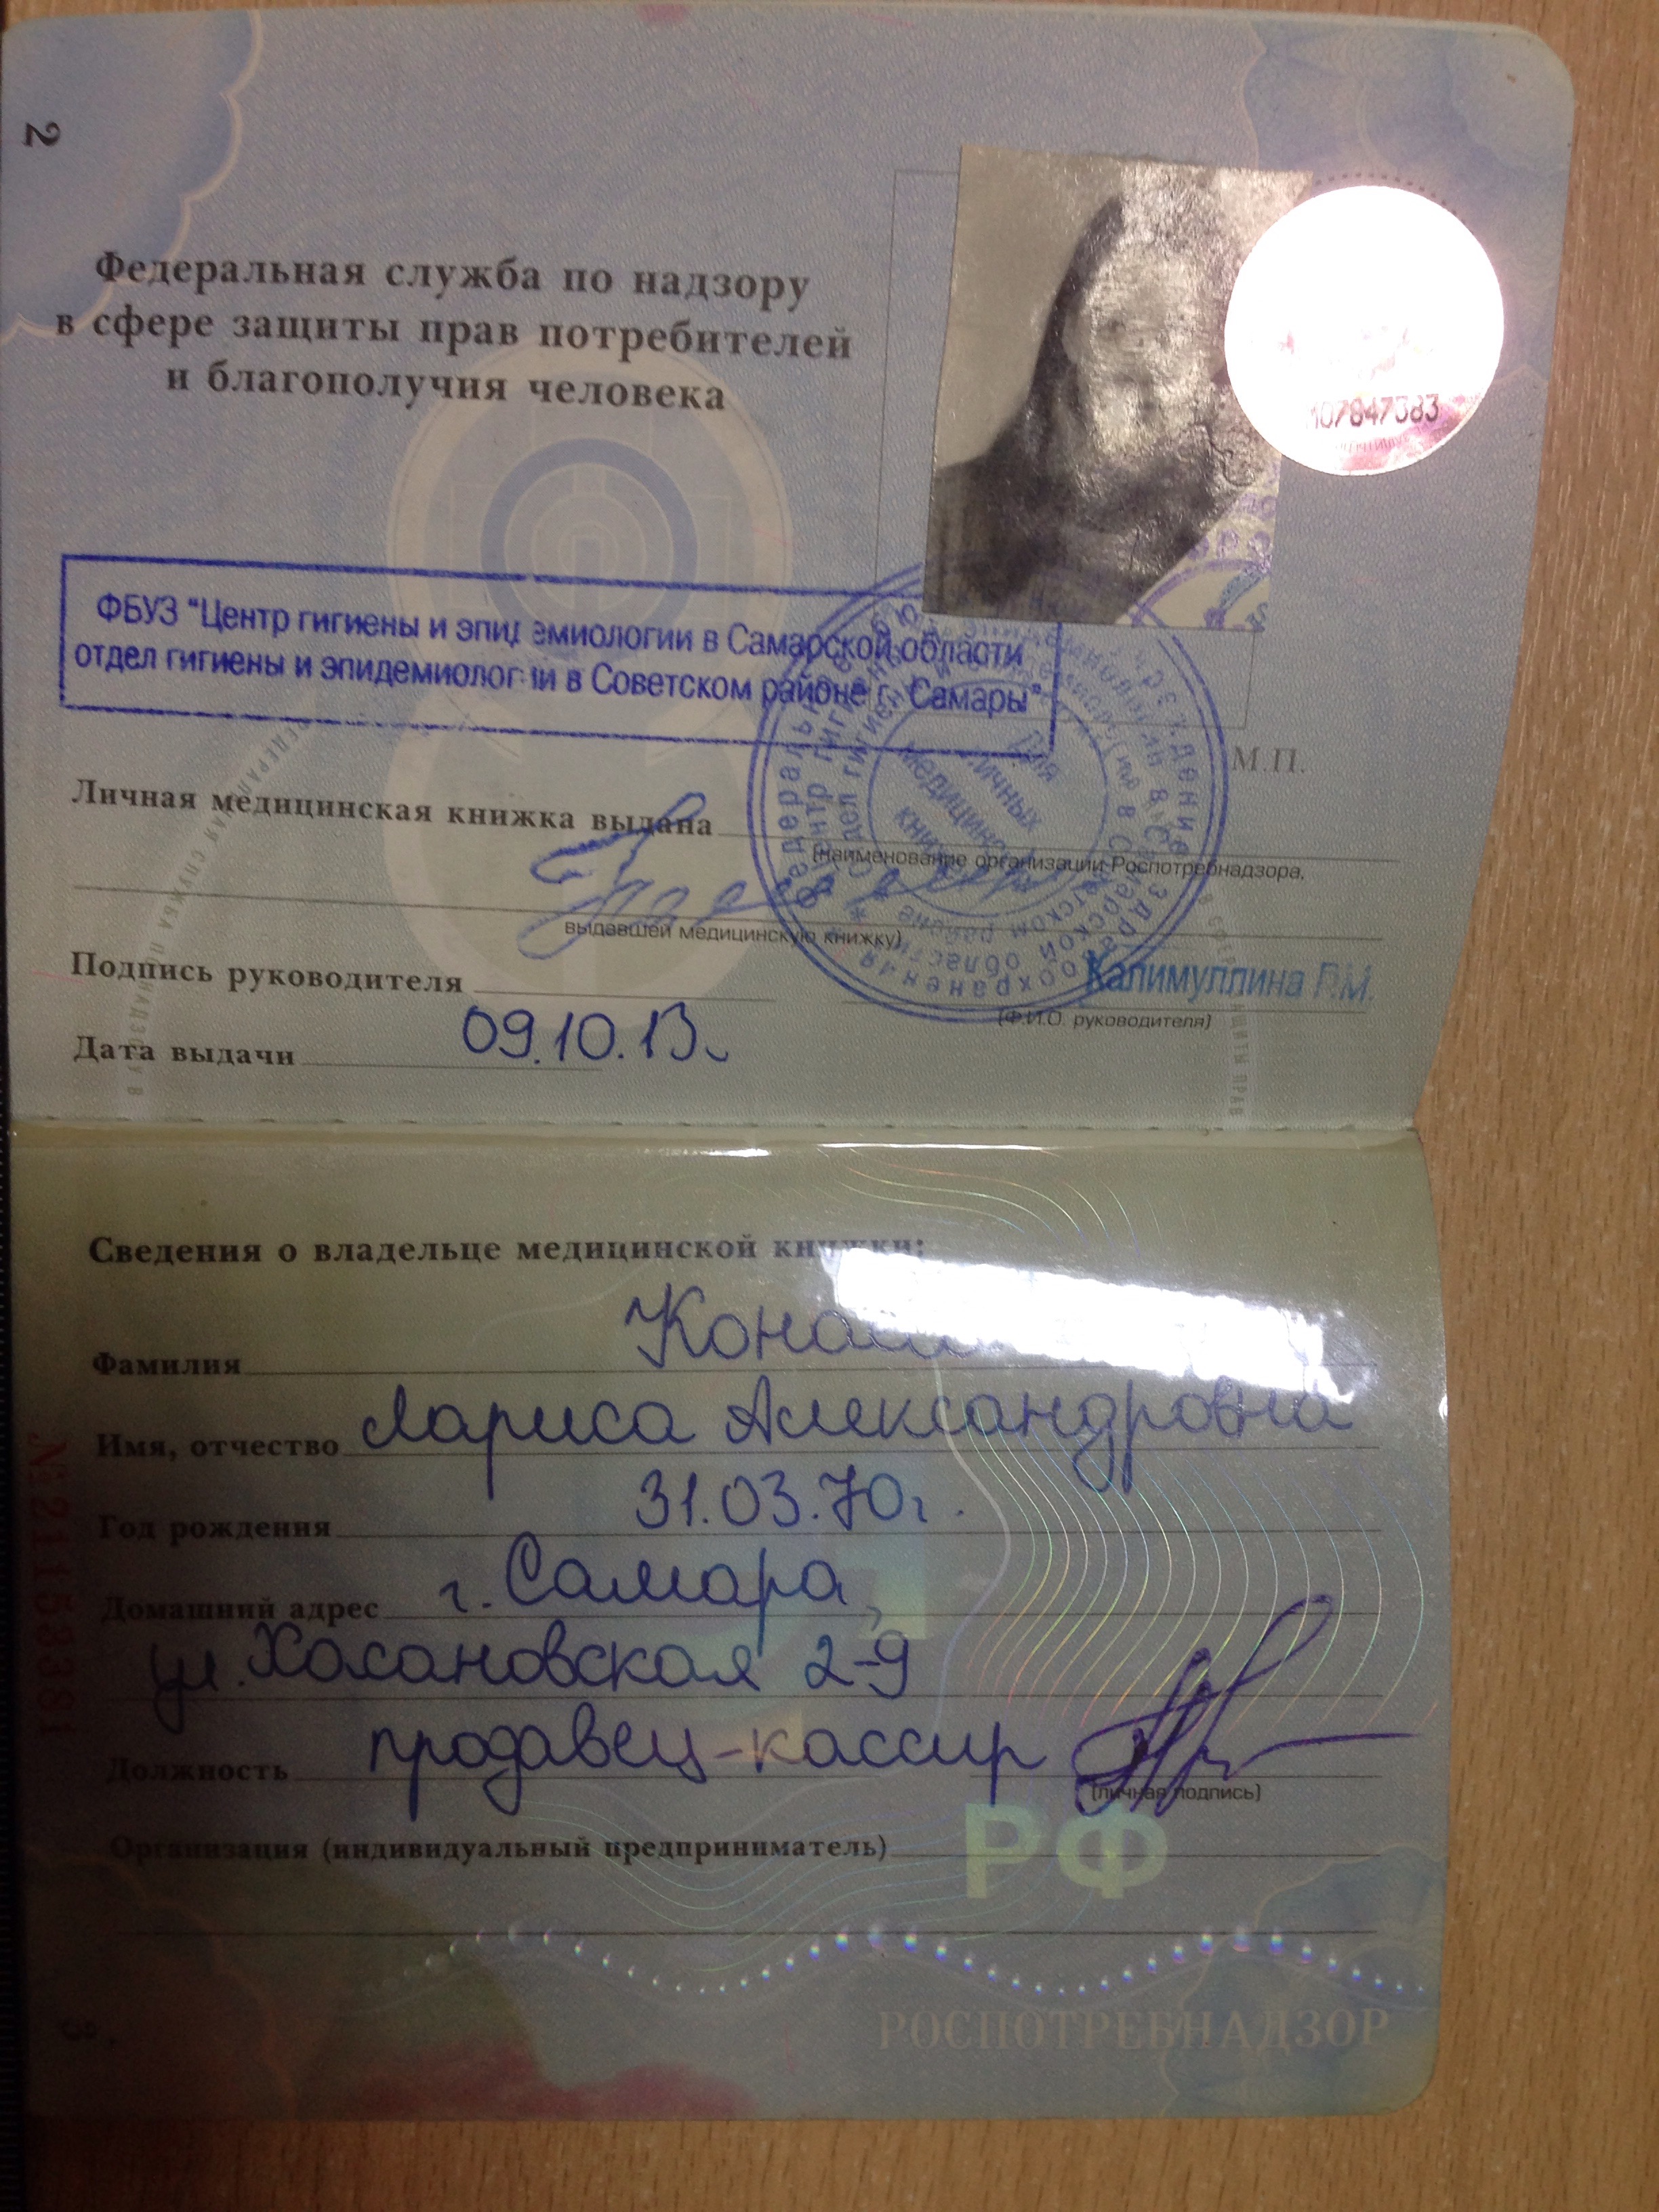 2
Федеральная служба по надзору
в сфере защиты прав потребителей
и благополучия человека
107847383
ФБУЗ "Центр гигиены и эпидемиологии в Самарской области
отдел гигиены и эпидемиологии в Советском районе г. Самары"
Для личных медицинских книжек
М.П.
Личная медицинская книжка выдана
(наименование организации Роспотребнадзора,
выдавшей медицинскую книжку)
Подпись руководителя
Калимуллина Р.М.
(Ф.И.О. руководителя)
Дата выдачи 09.10.13г.
Сведения о владельце медицинской книжки:
Фамилия
Имя, отчество Лариса Александровна
Год рождения 31.03.70г.
Домашний адрес г. Самара,
ул. Хасановская 2-9
Должность продавец-кассир
(личная подпись)
Организация (индивидуальный предприниматель)
РФ
РОСПОТРЕБНАДЗОР
3